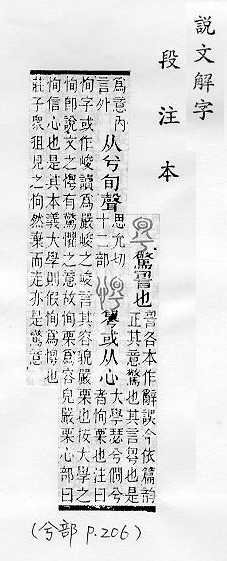 說文解字
段注本
驚䛐也
䛐各本作辭誤今依篇韵
正其意驚也其言䛐也是
爲意內
言外
从兮旬聲
思允切
十二部
或从心
大學瑟兮僩兮
者恂栗也注曰
恂字或作峻讀爲嚴峻之峻言其容貌嚴栗也按大學之
恂卽說文之有驚懼之意故恂栗爲容皃嚴栗心部曰
恂信心也是其本義大學則假恂爲也
莊子衆狙見之恂然棄而走亦是驚意
(兮部 P.206)